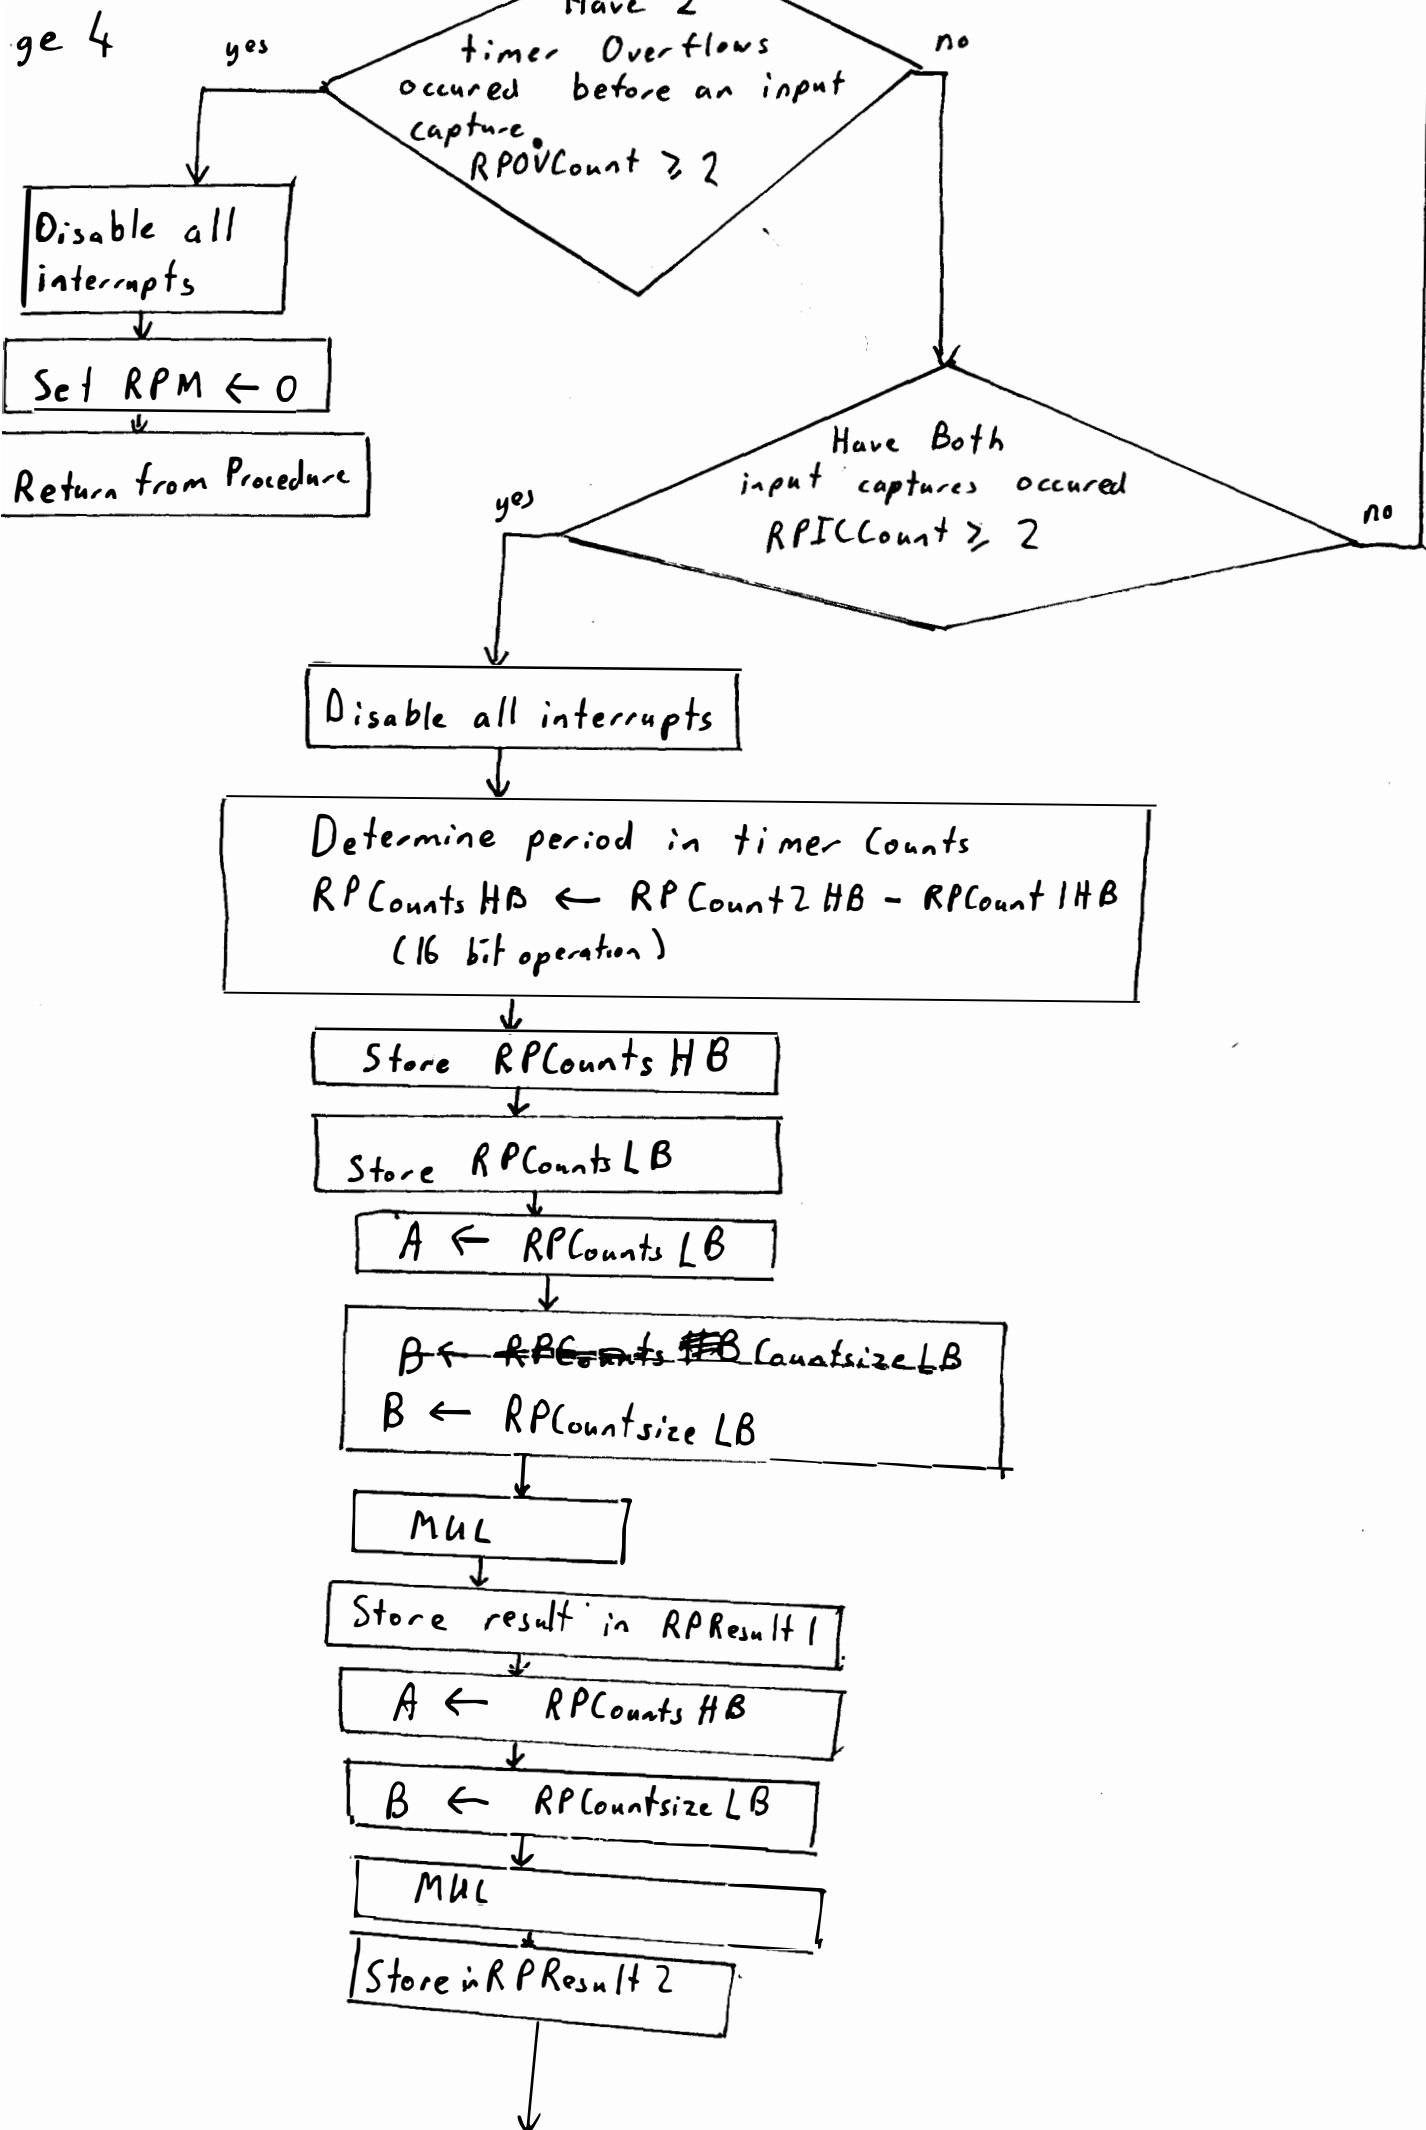 ge 4
yes
Have 2
timer Overflows
occured before an input
capture.
RPOVCount ≥ 2
no
Disable all
interrupts
Set RPM ← 0
Return from Procedure
Have Both
input captures occured
RPICCount ≥ 2
yes
no
Disable all interrupts
Determine period in timer Counts
RPCountsHB ← RPCount2HB - RPCount1HB
(16 bit operation)
Store RPCountsHB
Store RPCountsLB
A ← RPCountsLB
B ← RPCounts B CountsizeLB
B ← RPCountsizeLB
MUL
Store result in RPResult1
A ← RPCountsHB
B ← RPCountsizeLB
MUL
Store in RPResult2